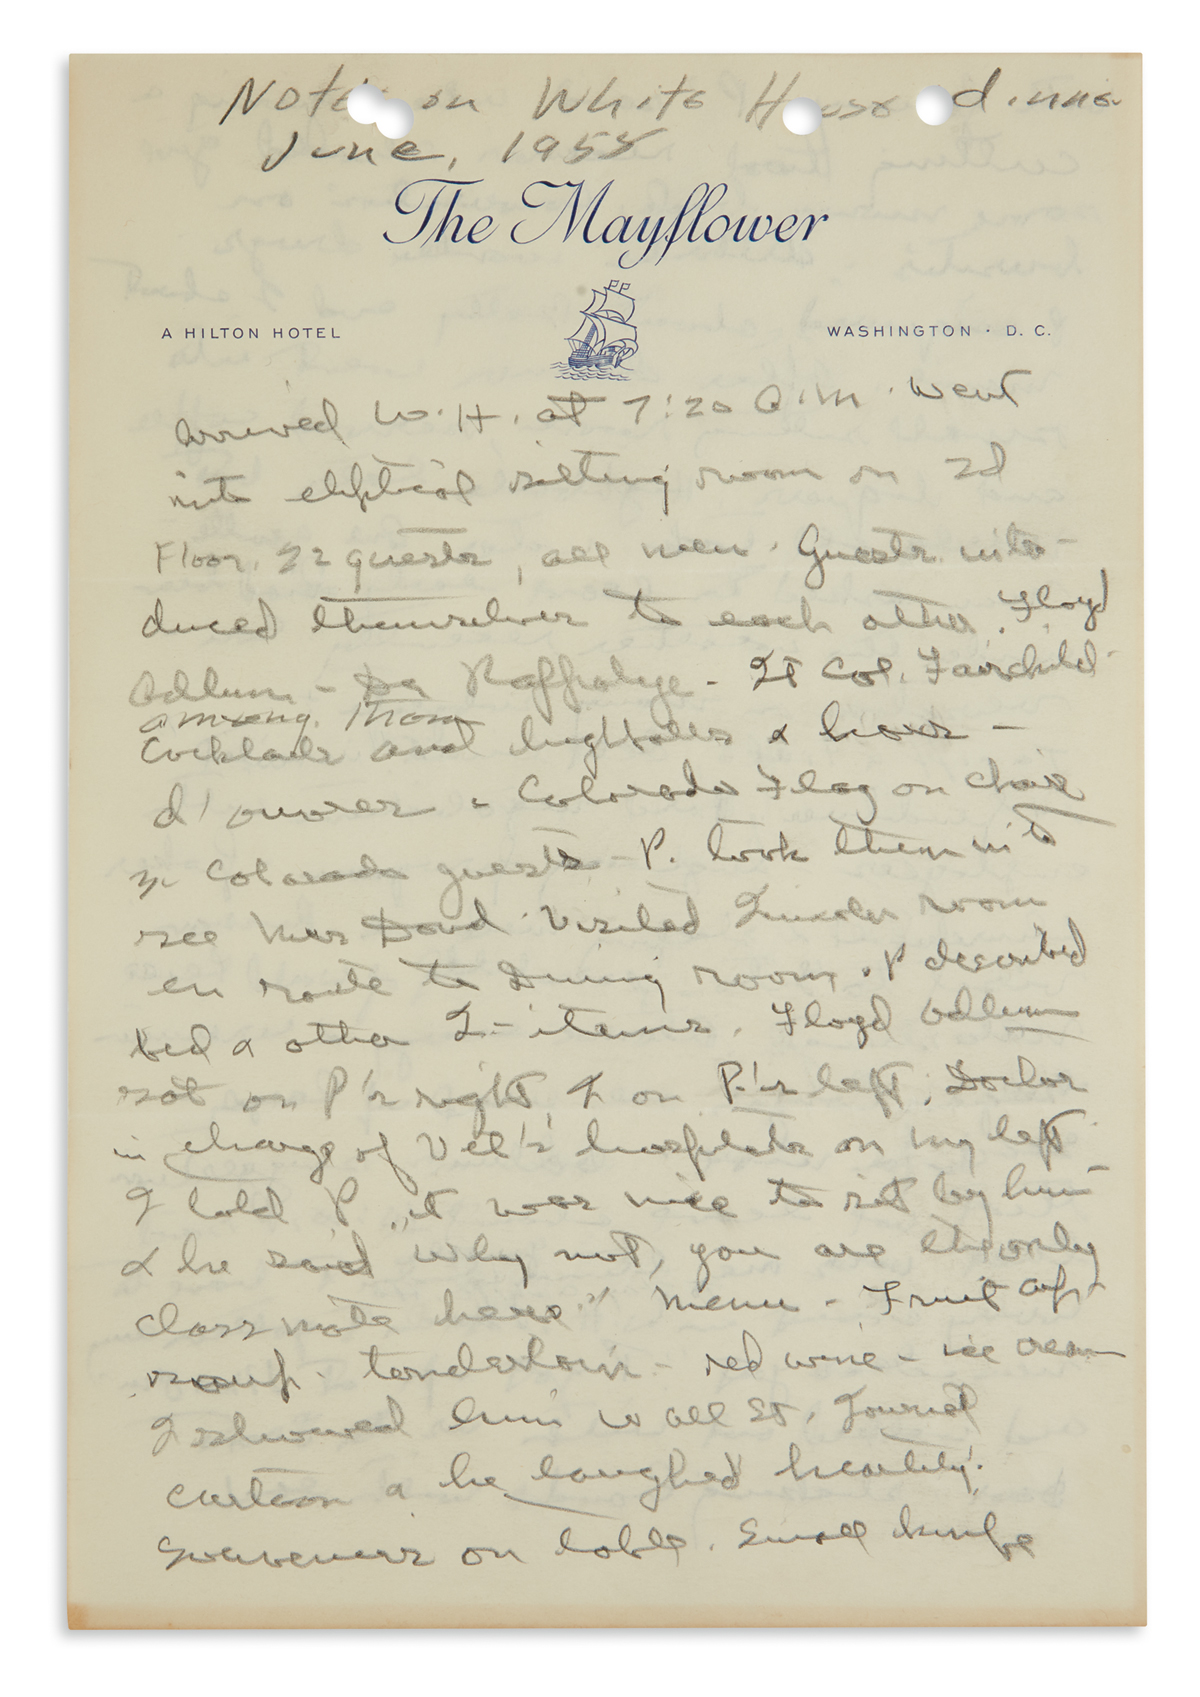 Notes on White House dinner
June, 1955
The Mayflower
A HILTON HOTEL
WASHINGTON · D. C.
Arrived W.H. at 7:20 P.M. Went
into eliptical sitting room on 2d
Floor. 22 guests, all men. Guests intro-
duced themselves to each other. Floyd
Odlum - Lt Col. Fairchild
among them
Cocktails and highballs & hours -
d'ouvres - Colorado Flag on chair
Colorado guests - P. took them into
see Mrs Doud. Visited Lincoln room
en route to Dining room. P described
bed & other L- items. Floyd Odlum
sat on P's right, I on P.'s left. Doctor
in charge of Vet's hospitals on my left
I told P it was nice to sit by him
& he said "Why not, you are the only
classmate here." Menu - Fruit cup -
soup - tenderloin - red wine - ice cream
I showed him Wall St. Journal
cartoon & he laughed heartily.
Souveneirs on table. Small knife